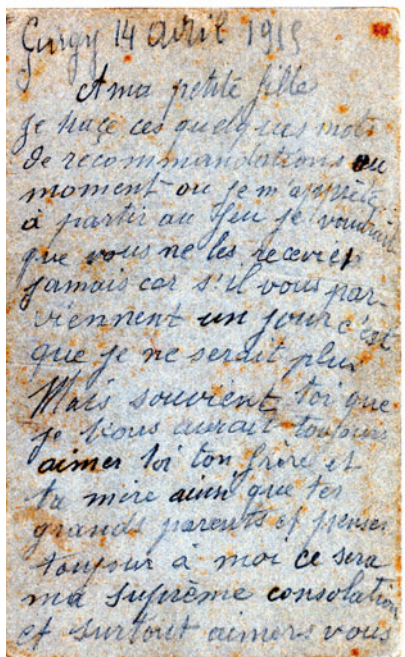 Gurgy 14 avril 1915
A ma petite fille
je trace ces quelques mots
de recommandations au
moment ou je m'apprête
à partir au feu je voudrait
que vous ne les receviez
jamais car s'il vous par-
viennent un jour c'est
que je ne serait plus
Mais souvient toi que
je vous aurait toujours
aimer toi ton frère et
ta mère ainsi que tes
grands parents et penser
toujour à moi ce sera
ma suprème consolation
et surtout aimers vous